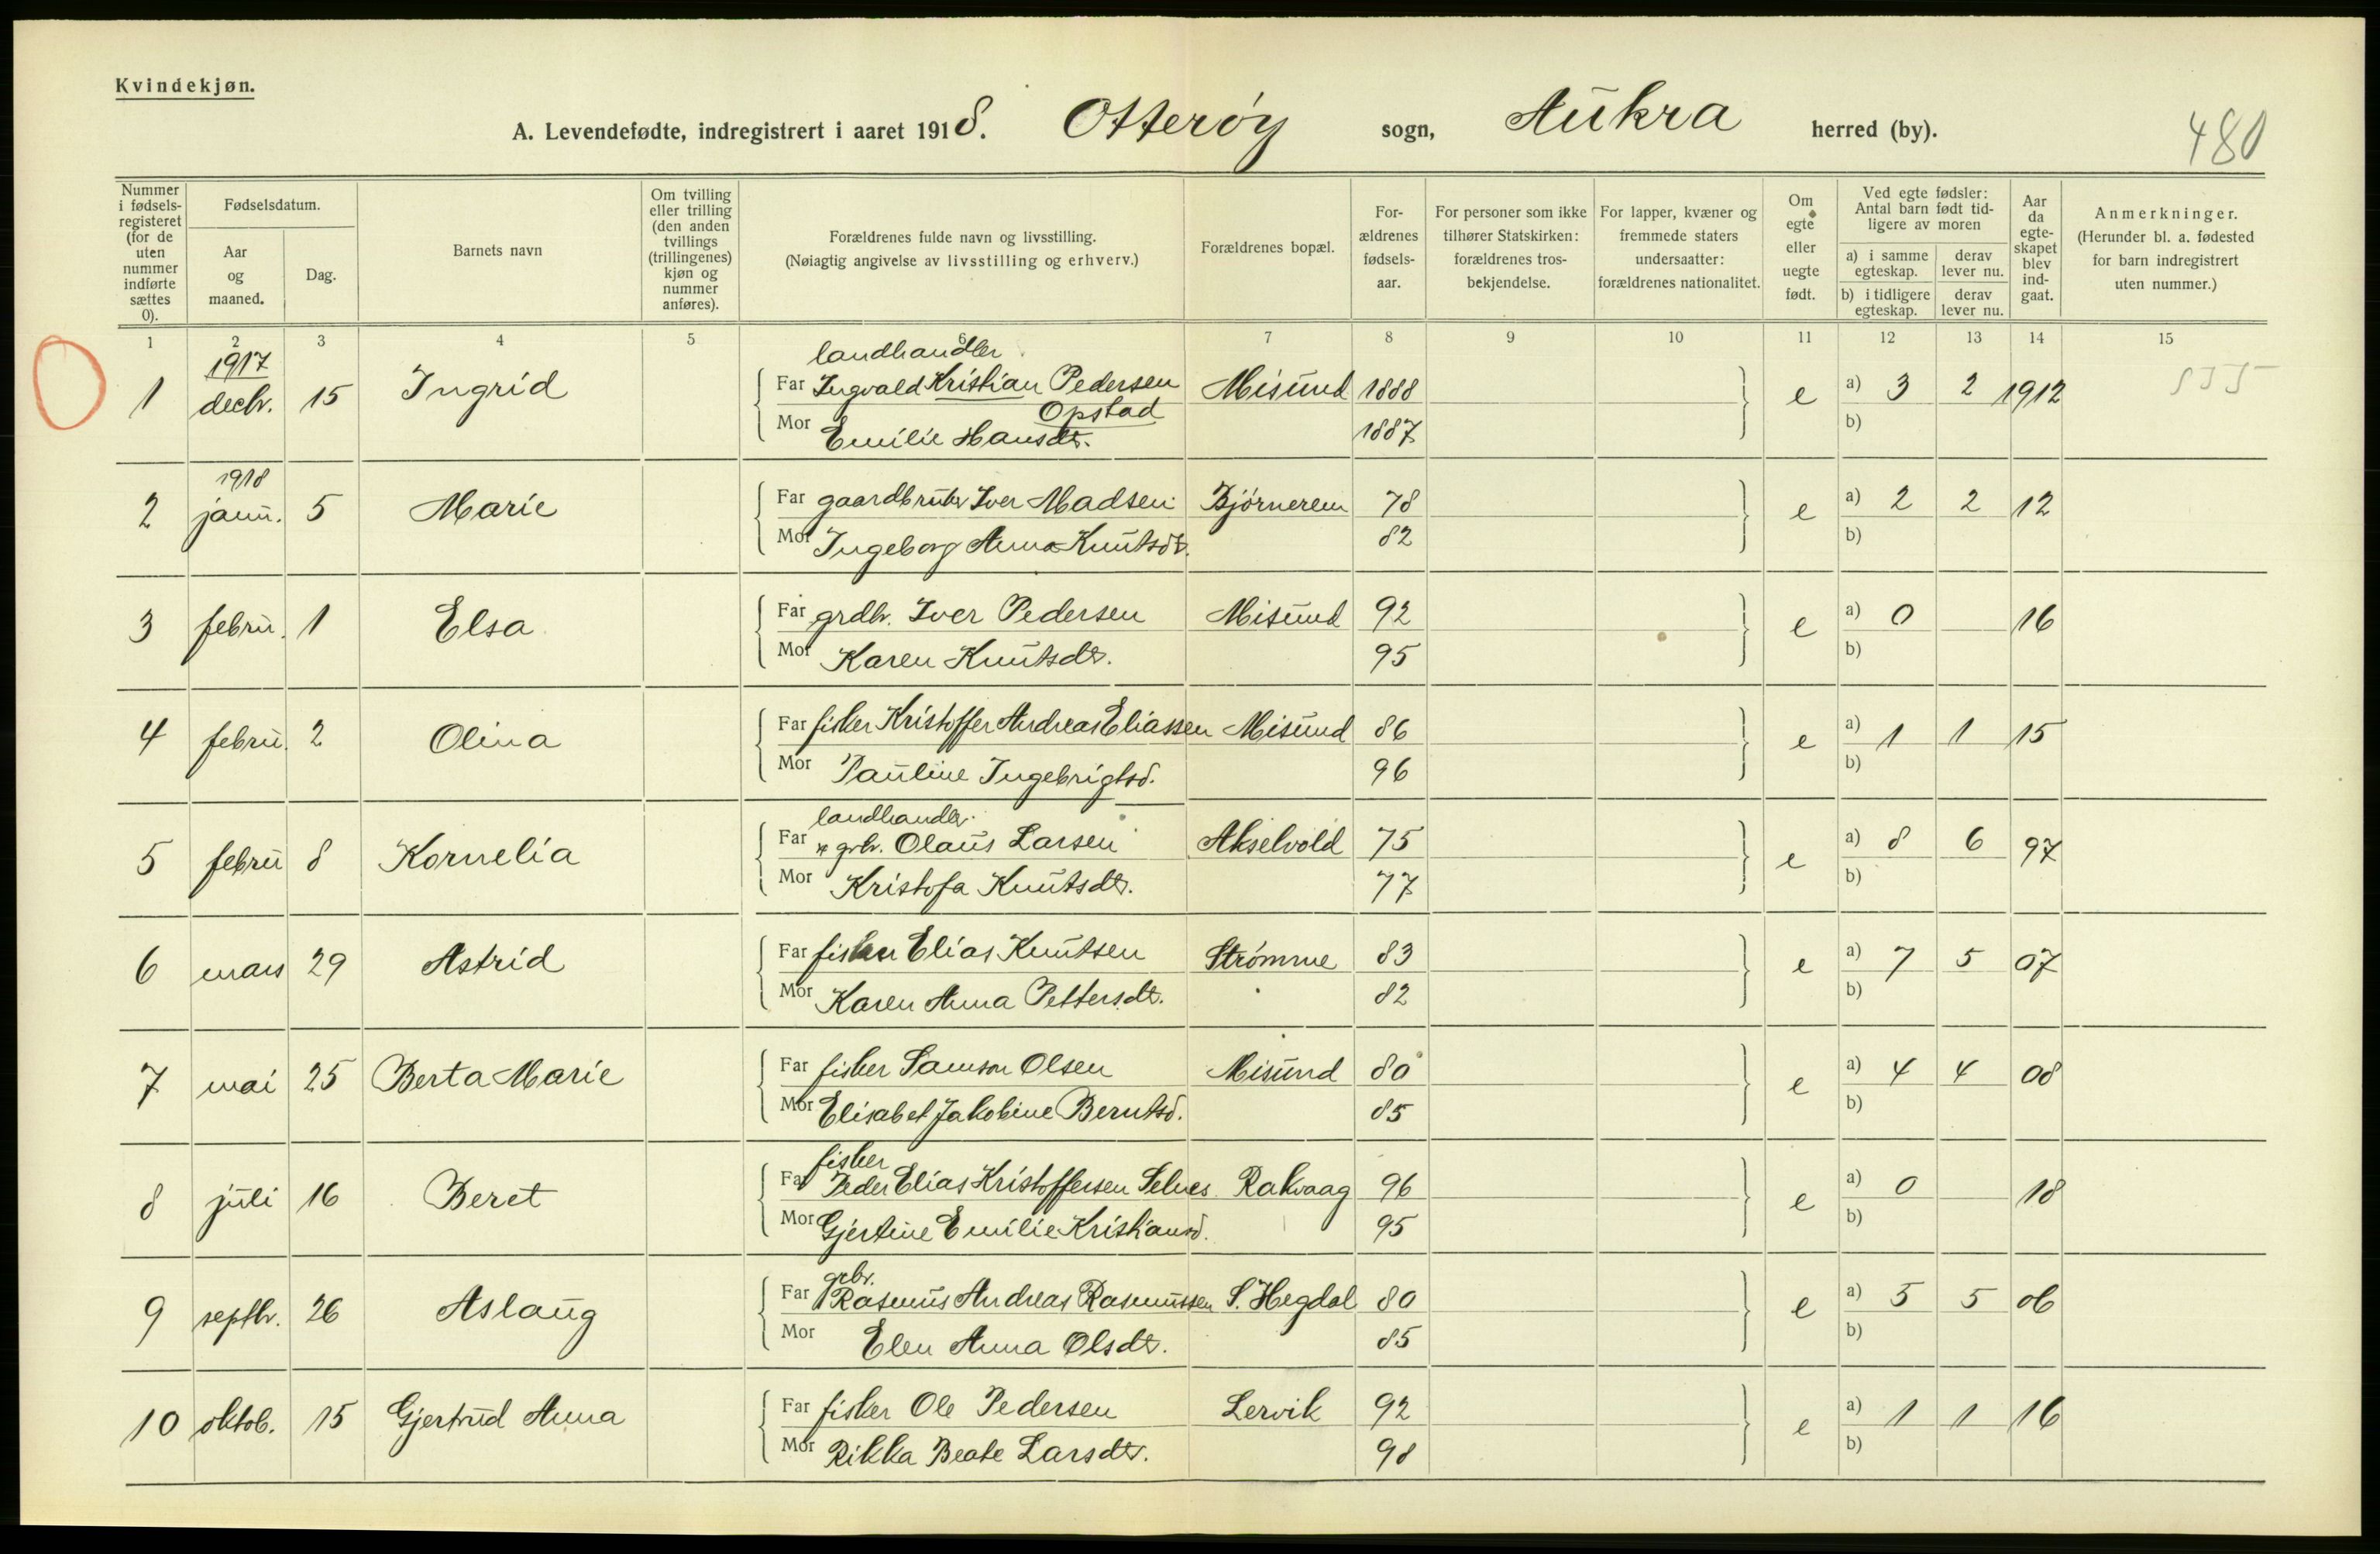 Kvindekjøn.
A. Levendefødte, indregistrert i aaret 1918. Otterøy sogn, Aukra herred (by). 480
Nummer i fødselsregisteret (for de uten nummer indførte sættes 0).
Fødselsdatum.
Aar og maaned.
Dag.
Barnets navn
Om tvilling eller trilling (den anden tvillings (trillingenes) kjøn og nummer anføres).
Forældrenes fulde navn og livsstilling.
(Nøiagtig angivelse av livsstilling og erhverv.)
Forældrenes bopæl.
Forældrenes fødselsaar.
For personer som ikke tilhører Statskirken: forældrenes trosbekjendelse.
For lapper, kvæner og fremmede staters undersaatter: forældrenes nationalitet.
Om egte eller uegte født.
Ved egte fødsler: Antal barn født tidligere av moren
a) i samme egteskap. derav lever nu.
b) i tidligere egteskap. derav lever nu.
Aar da egteskapet blev indgaat.
Anmerkninger.
(Herunder bl. a. fødested for barn indregistrert uten nummer.)
1 2 3 4 5 6 7 8 9 10 11 12 13 14 15
1917 landhandler
1 decbr. 15 Ingrid Far Ingvald Kristian Pedersen Misund 1888 e a) 3 2 1912
Opstad
Mor Emilie Hansdtr. 1887 b)
1918
2 janu. 5 Marie Far gaardbruker Iver Madsen Bjørnerem 78 e a) 2 2 12
Mor Ingeborg Anna Knutsdtr. 82 b)
3 febru. 1 Elsa Far grdbr. Iver Pedersen Misund 92 e a) 0 16
Mor Karen Knutsdtr. 95 b)
4 febru. 2 Olina Far fisker Kristoffer Andreas Eliassen Misund 86 e a) 1 1 15
Mor Pauline Ingebrigtsd. 96 b)
landhandler
5 febru 8 Kornelia Far & grbr. Olaus Larsen Akselvold 75 e a) 8 6 97
Mor Kristofa Knutsdtr. 77 b)
6 mars 29 Astrid Far fisker Elias Knutsen Strømme 83 e a) 7 5 07
Mor Karen Anna Pettersdtr. 82 b)
7 mai 25 Berta Marie Far fisker Samson Olsen Misund 80 e a) 4 4 08
Mor Elisabet Jakobine Berntsd. 85 b)
fisker
8 juli 16 Beret Far Peder Elias Kristoffersen Selnes Rakvaag 96 e a) 0 18
Mor Gjertine Emilie Kristiansd. 95 b)
grbr.
9 septbr. 26 Aslaug Far Rasmus Andreas Rasmussen S. Hegdal 80 e a) 5 5 06
Mor Elen Anna Olsdtr. 85 b)
10 oktob. 15 Gjertrud Anna Far fisker Ole Pedersen Lervik 92 e a) 1 1 16
Mor Rikka Beate Larsdtr. 98 b)